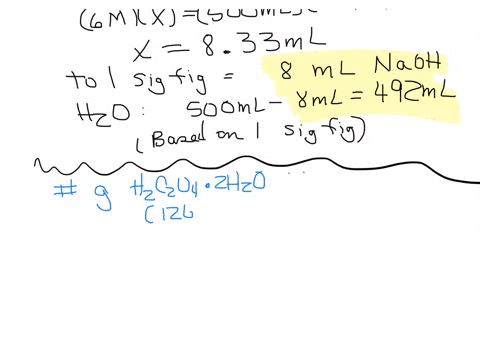 (6M)(X)=(500mL)(
X = 8.33mL
to 1 sig fig = 8 mL NaOH
H2O: 500mL - 8mL = 492mL
(Based on 1 sig fig)
# g H2C2O4·2H2O
(126